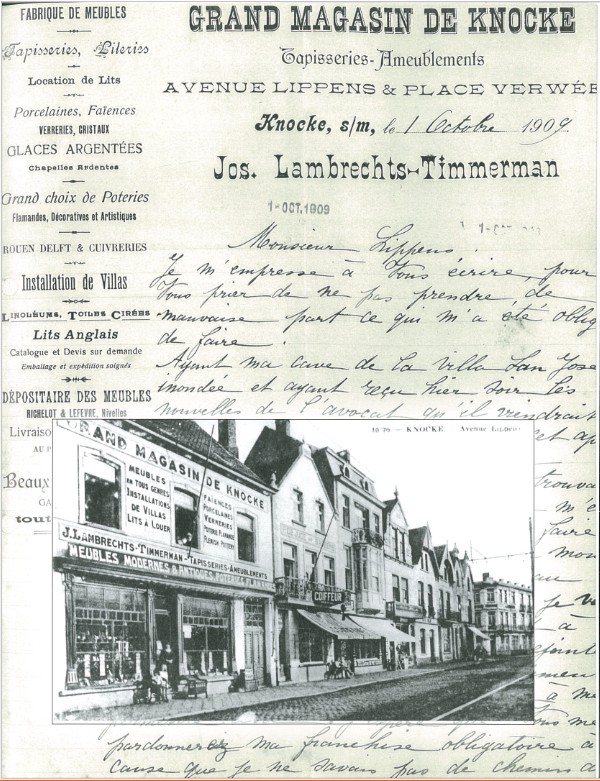 FABRIQUE DE MEUBLES
Tapisseries, Literies
Location de Lits
Porcelaines, Faïences
VERRERIES, CRISTAUX
GLACES ARGENTÉES
Chapelles Ardentes
Grand choix de Poteries
Flamandes, Décoratives et Artistiques
ROUEN DELFT & CUIVRERIES
Installation de Villas
LINOLÉUMS, TOILES CIRÉES
Lits Anglais
Catalogue et Devis sur demande
Emballage et expédition soignés
DÉPOSITAIRE DES MEUBLES
RICHELOT & LEFEVRE, Nivelles
Livraiso
AU P
Beaux
GA
tout
GRAND MAGASIN DE KNOCKE
Tapisseries-Ameublements
AVENUE LIPPENS & PLACE VERWÉE
Knocke, s/m, le 1 Octobre 1909
Jos. Lambrechts-Timmerman
1-OCT.1909
Monsieur Lippens.
Je m'empresse à Vous écrire, pour
Vous prier de ne pas prendre, de
mauvaise part ce qui m'a été oblig
de faire.
Ayant ma cave de la villa San José
inondée et ayant reçu hier soir les
nouvelles de l'avocat qu'il viendrait
et ap
trouva
m'é
faire
mon
au
je v
à
meu
à m
pardonnerez ma franchise obligatoire à
cause que je ne savais pas de chemin d
KNOCKE. Avenue Lippens
GRAND MAGASIN DE KNOCKE
MEUBLES
EN TOUS GENRES
INSTALLATIONS
DE VILLAS
LITS À LOUER
FAÏENCES
PORCELAINES
VERRERIES
POTERIE FLAMANDE
FLEMISH POTERY
J. LAMBRECHTS-TIMMERMAN-TAPISSERIES-AMEUBLEMENTS
MEUBLES MODERNES & ANTIQUES
COIFFEUR